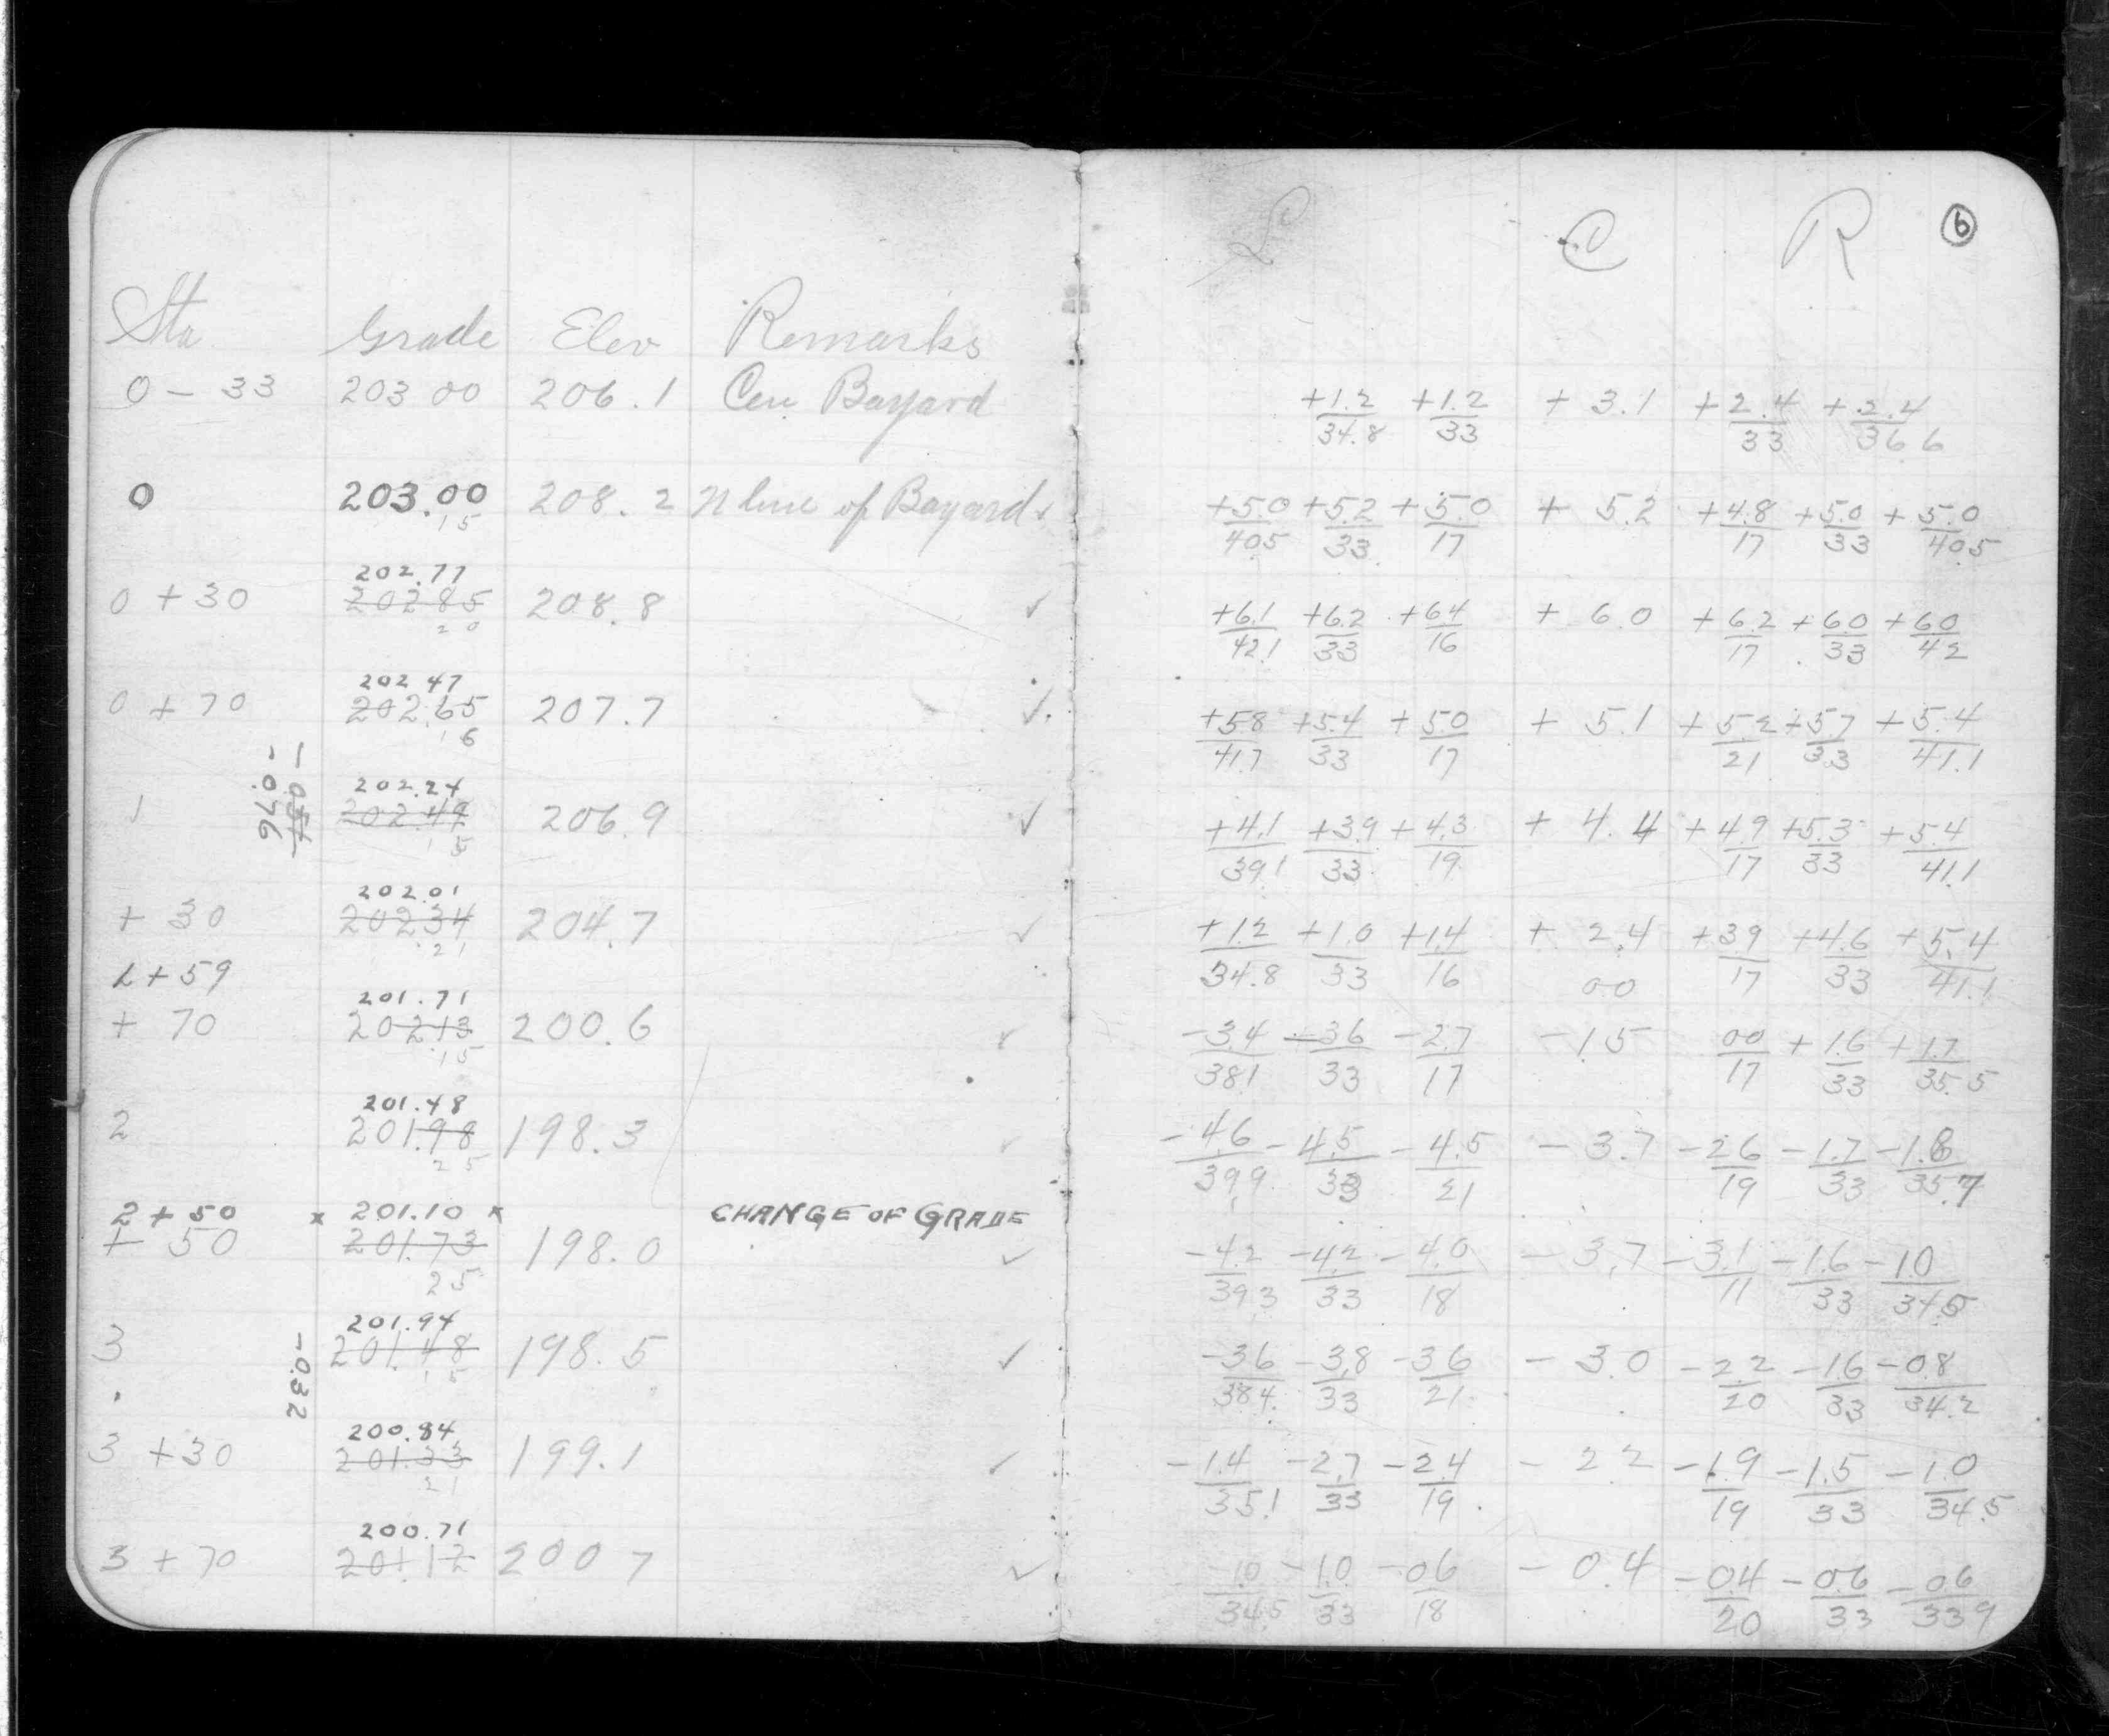 L C R 6
Sta Grade Elev Remarks
0 - 33 203 00 206.1 Cen Bayard +1.2 +1.2 + 3.1 +2.4 +2.4
34.8 33 33 36 6
0 203.00 208.2 N line of Bayard ✓ +5.0 +5.2 +5.0 + 5.2 +4.8 +5.0 +5.0
15 405 33 17 17 33 40.5
202.77
0 + 30 202 85 208.8 ✓ +6.1 +6.2 +6.4 + 6.0 +6.2 +6.0 +6.0
20 42.1 33 16 17 33 42
202 47
0 + 70 202.65 207.7 ✓ +5.8 +5.4 +5.0 + 5.1 +5.2 +5.7 +5.4
16 41.7 33 17 21 33 41.1
- .054
- 0.76
202.24
1 202.49 206.9 ✓ +4.1 +3.9 +4.3 + 4.4 +4.9 +5.3 +5.4
15 39.1 33 19 17 33 41.1
202.01
+ 30 202 34 204.7 ✓ +1.2 +1.0 +1.4 + 2.4 +3.9 +4.6 +5.4
21 34.8 33 16 17 33 41.1
1+59 00
201.71
+ 70 202 13 200.6 ✓ -3.4 -3.6 -2.7 -1.5 00 +1.6 +1.7
15 38.1 33 17 17 33 35.5
201.48
2 201.98 198.3 ✓ -4.6 -4.5 -4.5 - 3.7 -2.6 -1.7 -1.8
25 39.9 33 21 19 33 35.7
2 + 50 x 201.10 x CHANGE OF GRADE
+ 50 201.73 198.0 ✓ -4.2 -4.2 -4.0 - 3.7 -3.1 -1.6 -1.0
25 39.3 33 18 11 33 34.5
201.94
3 201.48 198.5 ✓ -3.6 -3.8 -3.6 - 3.0 -2.2 -1.6 -0.8
15 38.4 33 21 20 33 34.2
-0.32
200.84
3 + 30 201.33 199.1 ✓ -1.4 -2.7 -2.4 - 2.2 -1.9 -1.5 -1.0
21 35.1 33 19 19 33 34.5
200.71
3 + 70 201.12 200 7 ✓ -1.0 -1.0 -0.6 - 0.4 -0.4 -0.6 -0.6
34.5 33 18 20 33 33 9